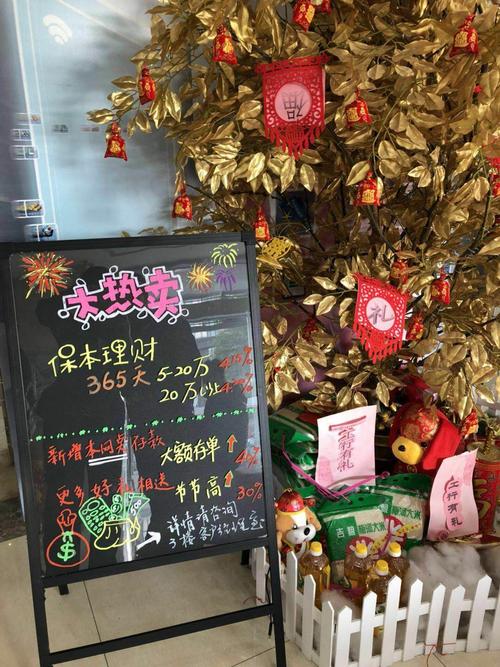 大热卖
保本理财
365天
5-20万
20万以上
新增本网点存款
大额存单
40%
更多好礼相送
节节高
30%
详情请咨询
3楼客户经理室
福
礼
工行有礼
工行有礼
吉粮